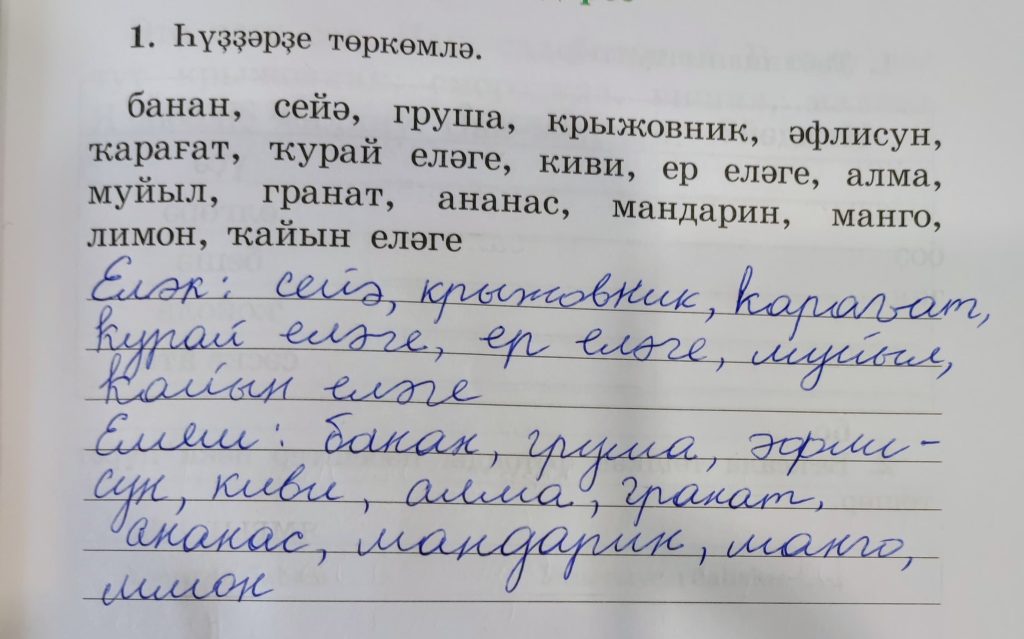 1. Һүҙҙәрҙе төркөмлә.
банан, сейә, груша, крыжовник, әфлисун,
ҡарағат, ҡурай еләге, киви, ер еләге, алма,
муйыл, гранат, ананас, мандарин, манго,
лимон, ҡайын еләге
Еләк: сейә, крыжовник, ҡарағат,
ҡурай еләге, ер еләге, муйыл,
ҡайын еләге
Емеш: банан, груша, әфли-
сун, киви, алма, гранат,
ананас, мандарин, манго,
лимон